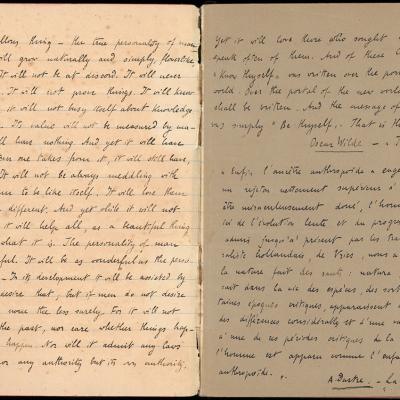 llous thing – the true personality of man
ll grow naturally and simply, flowerlike,
It will not be at discord. It will never
. It will not prove things. It will know
it will not busy itself about knowledge
. Its value will not be measured by ma-
ll have nothing. And yet it will have
one takes from it, it will still have,
It will not be always meddling with
em to be like itself. It will love them
different. And yet while it will not
it will help all, as a beautiful thing
what it is. The personality of man
ful. It will be as wonderful as the perso
– In its development it will be assisted by
desire that; but if men do not desire
none the less surely. For it will not
the past, nor care whether things hap-
happen. Nor will it admit any laws
or any authority but its own authority.
Yet it will love those who sought
speak often of them. And of these C
"Know Thyself" was written over the por
world. Over the portal of the new world
shall be written. And the message of
was simply "Be thyself". That is th
Oscar Wilde –
« Enfin, l'ancêtre anthropoïde a enge
un rejeton nettement supérieur à
être miraculeusement doué, l'homm
ici de l'évolution lente et du progr
admis jusqu'à présent par les tra
raliste hollandais, de Vries, nous a
la nature fait des sauts: natura
sait dans la vie des espèces, des sort
taines époques critiques, apparaissent d
des différences considérables et d'une na
à une de ces périodes critiques de la
l'homme est apparu comme l'enfa
anthropoïde. »
A. Dastre. – La